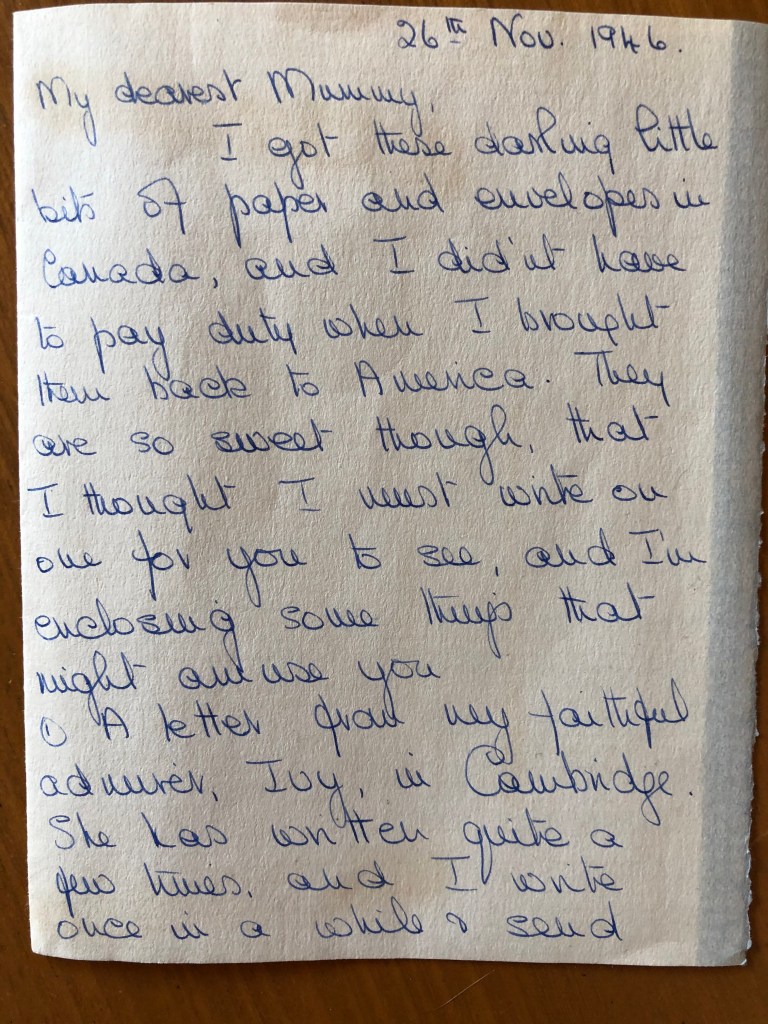 26th Nov. 1946.
My dearest Mummy,
I got these darling little
bits of paper and envelopes in
Canada, and I did'nt have
to pay duty when I brought
them back to America. They
are so sweet though, that
I thought I must write on
one for you to see, and I'm
enclosing some things that
might amuse you
① A letter from my faithful
admirer, Ivy, in Cambridge.
She has written quite a
few times, and I write
once in a while & send